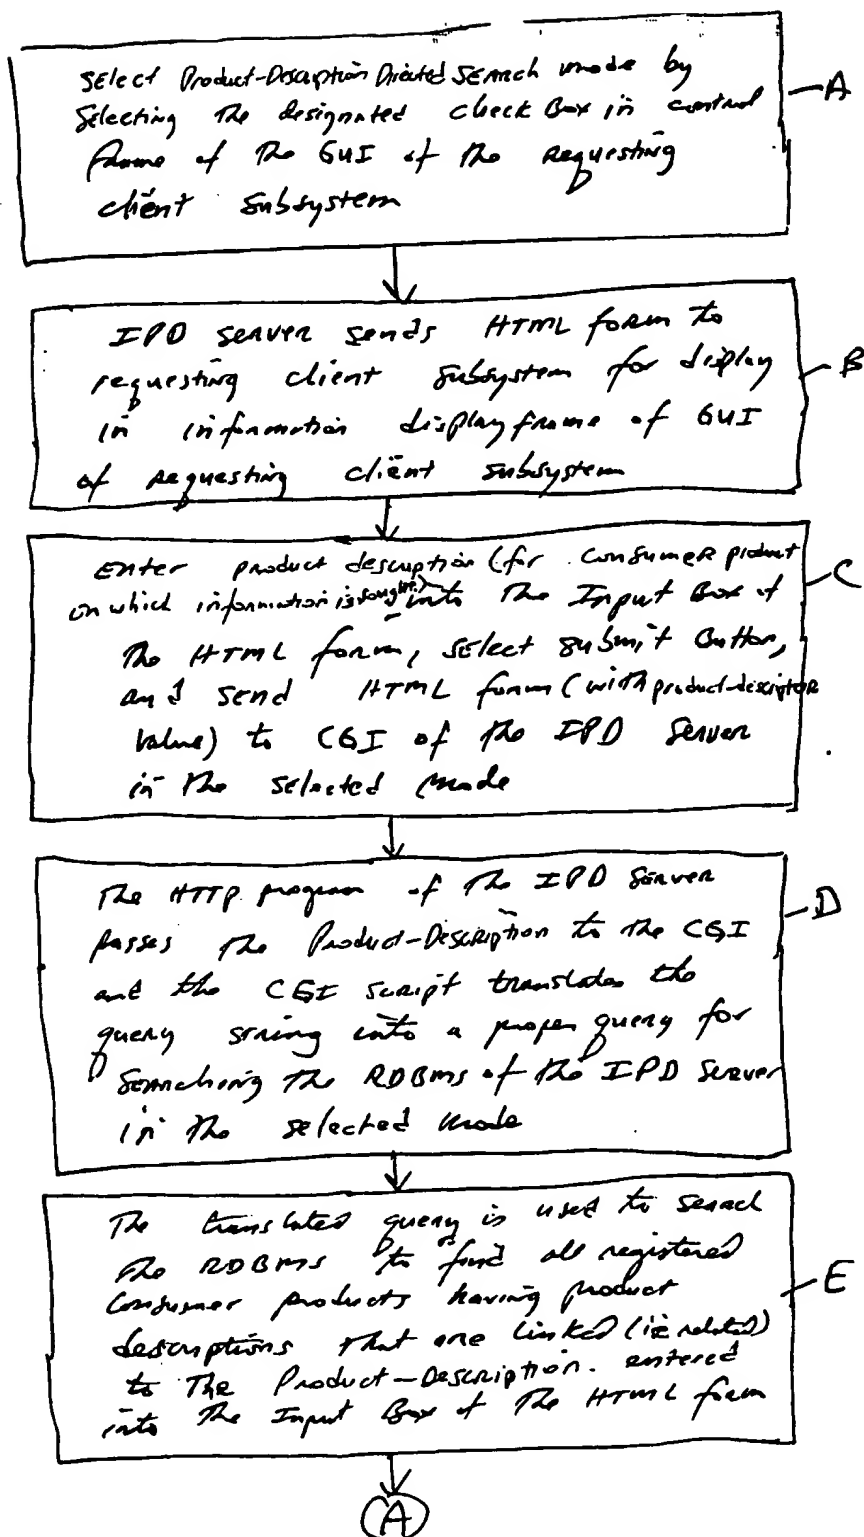 Select Product-Description Directed Search mode by
Selecting the designated check Box in control
frame of the GUI of the requesting
client subsystem
A
IPD Server sends HTML form to
requesting client subsystem for display
in information display frame of GUI
of requesting client subsystem
B
Enter product description (for consumer product
on which information is sought) into the Input Box of
the HTML form, select submit Button,
and send HTML form (with product-descriptor
value) to CGI of the IPD Server
in the selected mode
C
The HTTP program of the IPD Server
passes the Product-Description to the CGI
and the CGI script translates the
query string into a proper query for
searching the RDBMS of the IPD Server
in the selected mode
D
The translated query is used to search
the RDBMS to find all registered
consumer products having product
descriptions that are linked (ie related)
to the Product-Description. entered
into the Input Box of the HTML form
E
A